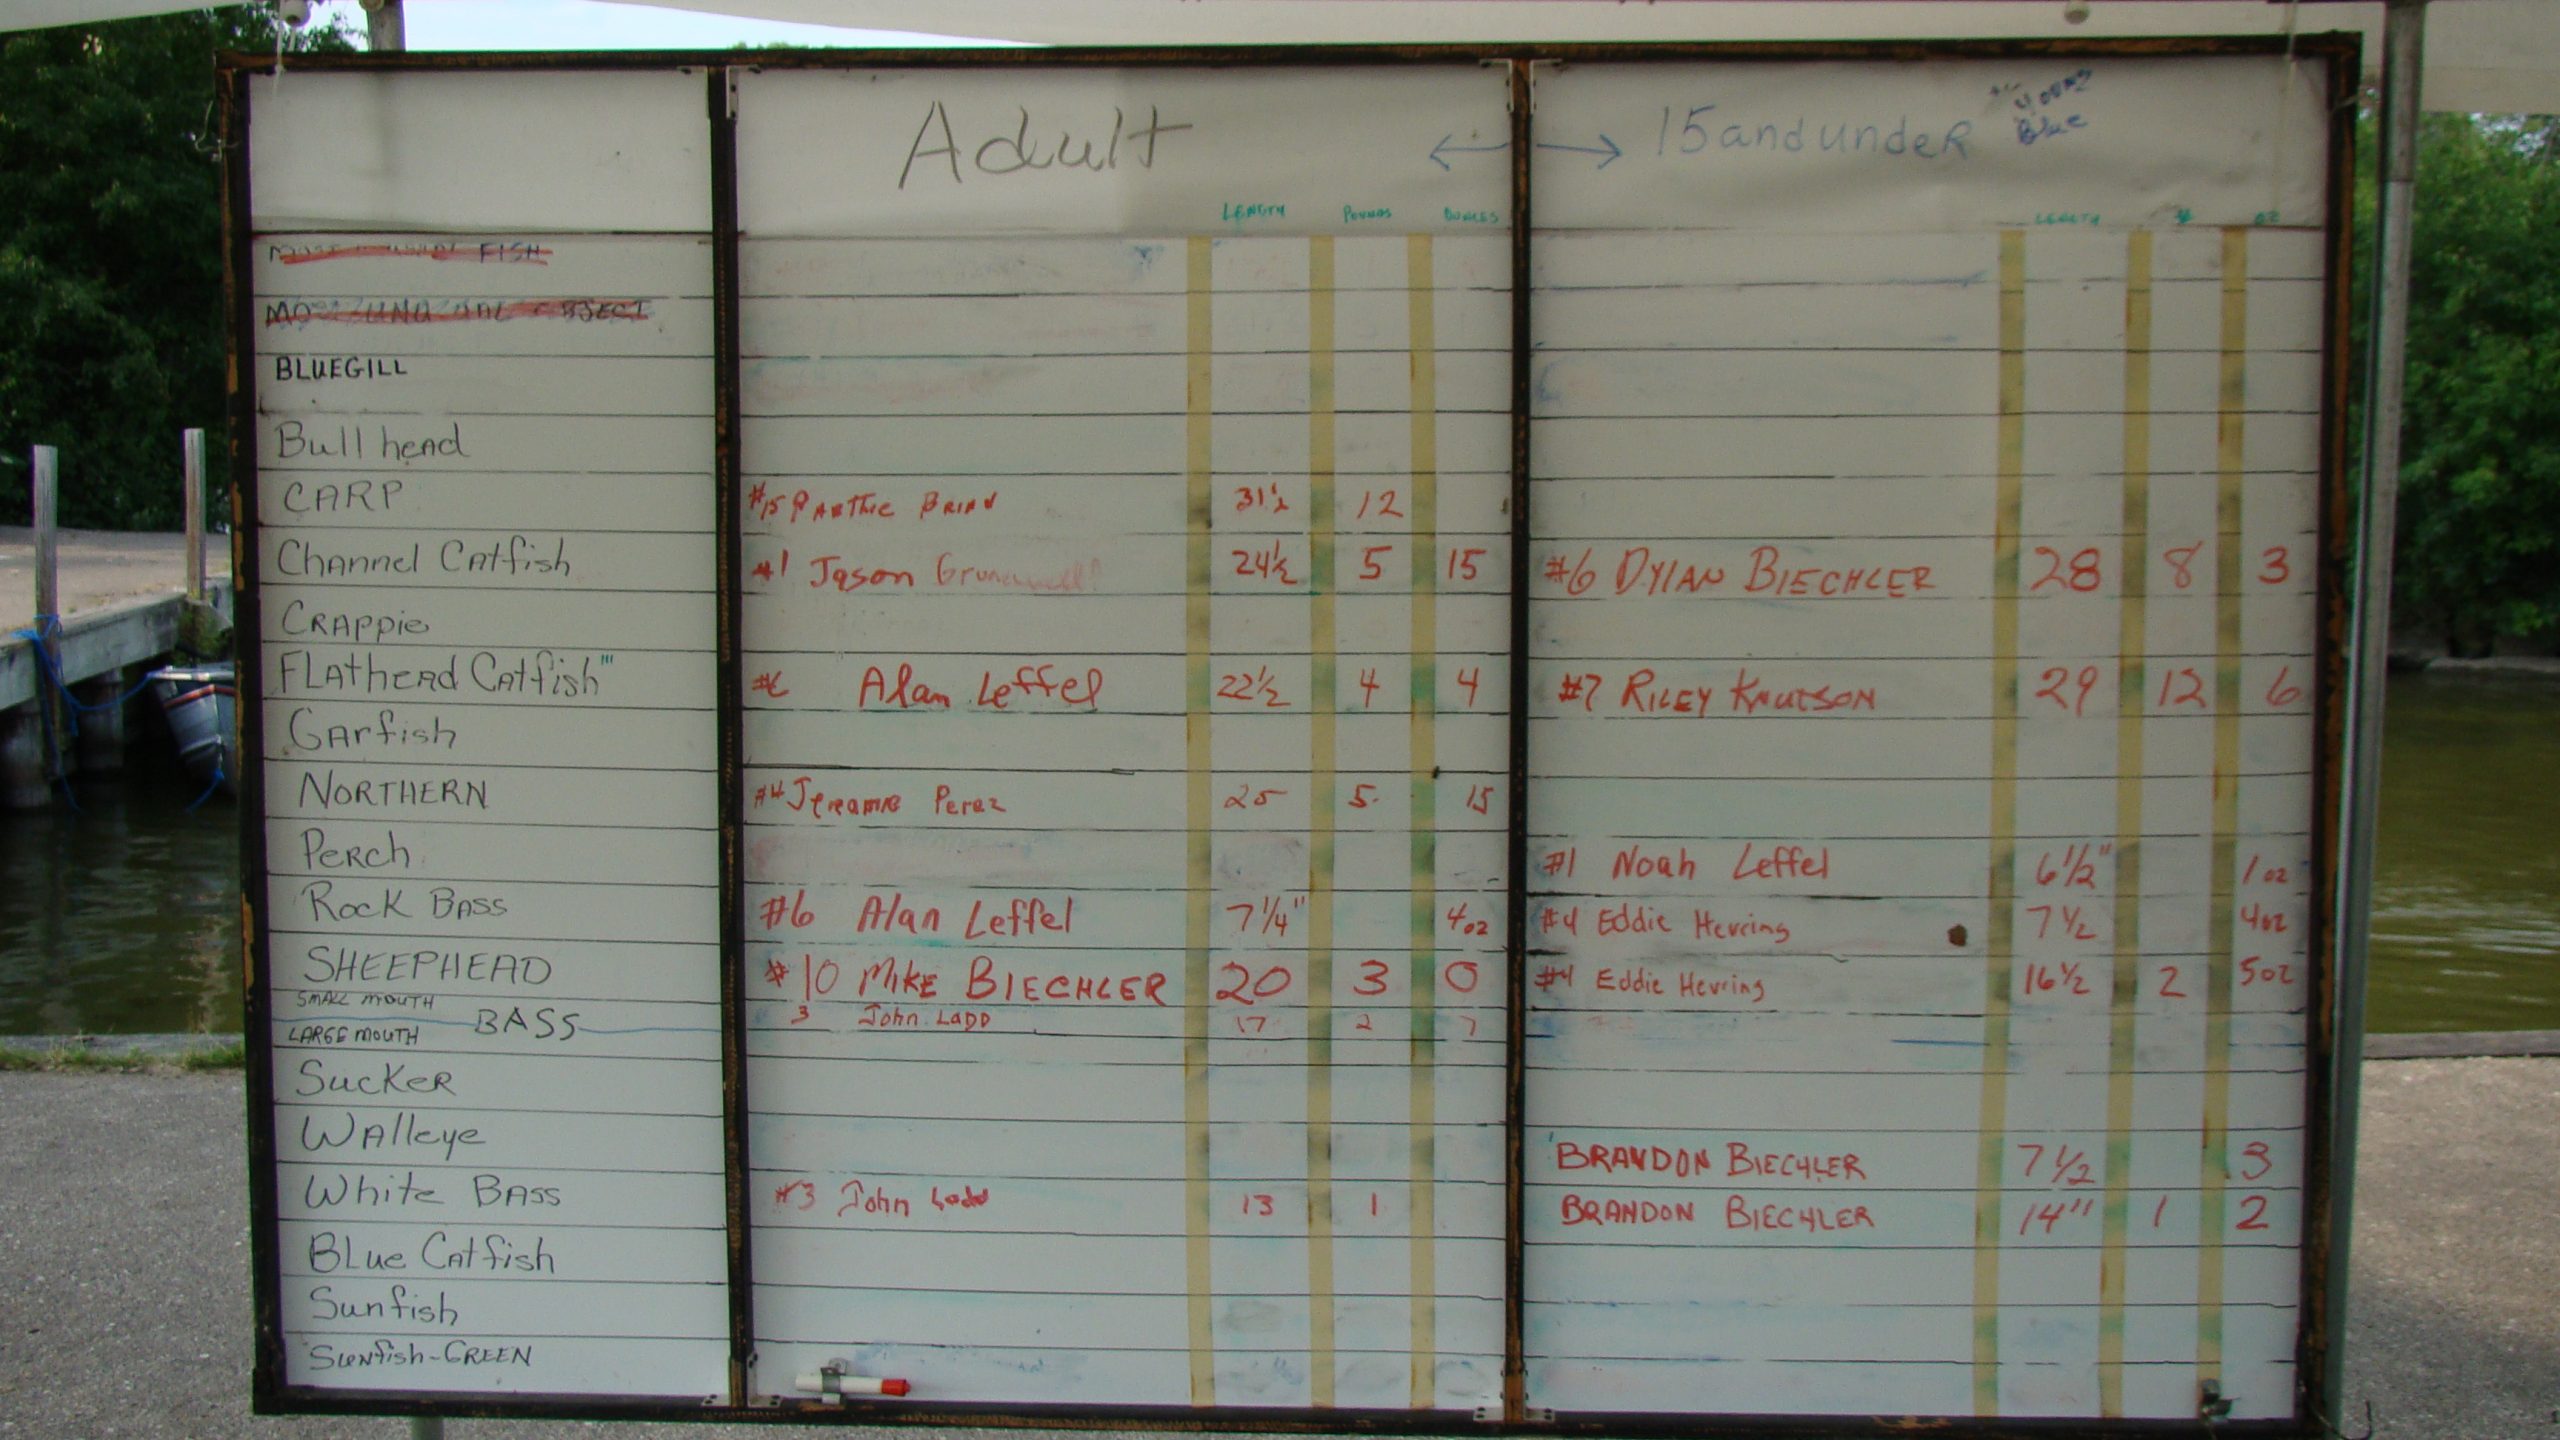 Adult ← → 15 and under
Blue
LENGTH POUNDS OUNCES LENGTH # OZ
FISH
BLUEGILL
Bull head
CARP #15 Brian 31 1/2 12
Channel Catfish #1 Jason 24 1/2 5 15 #6 DYLAN BIECHLER 28 8 3
CRAppie
FLAtheAD CAtfish''' Alan Leffel 22 1/2 4 4 #7 RILEY KNUTSON 29 12 6
GArfish
NORTHERN #4 Perez 25 5 15
PeRch #1 Noah Leffel 6 1/2" 1 oz
Rock BASS #6 Alan Leffel 7 1/4" 4 oz #4 Eddie Herring 7 1/2 4 oz
SHEEPHEAD #10 MIKE BIECHLER 20 3 0 #4 Eddie Herring 16 1/2 2 5 oz
SMALL MOUTH BASS 3 John LADD 17 2 7
LARGE MOUTH
SuckeR
WAlleye BRANDON BIECHLER 7 1/2 3
White BASS #3 John Ladd 13 1 BRANDON BIECHLER 14" 1 2
BLue CAtfish
Sunfish
Sunfish-GREEN